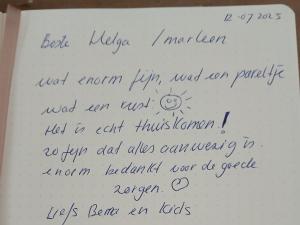 12-07-2025
Beste Helga / marleen
wat enorm fijn, wat een pareltje
wat een rust.
Het is echt thuiskomen!
zo fijn dat alles aanwezig is.
enorm bedankt voor de goede
zorgen.
Liefs Berna en Kids